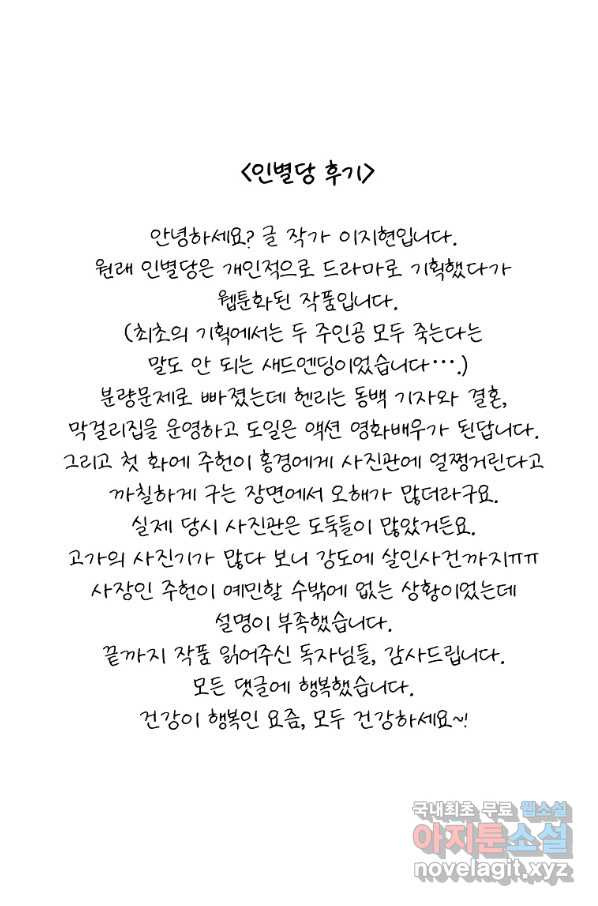 <인별당 후기>
안녕하세요? 글 작가 이지현입니다.
원래 인별당은 개인적으로 드라마로 기획했다가
웹툰화된 작품입니다.
(최초의 기획에서는 두 주인공 모두 죽는다는
말도 안 되는 새드엔딩이었습니다···.)
분량문제로 빠졌는데 헨리는 동백 기자와 결혼,
막걸리집을 운영하고 도일은 액션 영화배우가 된답니다.
그리고 첫 화에 주헌이 홍경에게 사진관에 얼쩡거린다고
까칠하게 구는 장면에서 오해가 많더라구요.
실제 당시 사진관은 도둑들이 많았거든요.
고가의 사진기가 많다 보니 강도에 살인사건까지ㅠㅠ
사장인 주헌이 예민할 수밖에 없는 상황이었는데
설명이 부족했습니다.
끝까지 작품 읽어주신 독자님들, 감사드립니다.
모든 댓글에 행복했습니다.
건강이 행복인 요즘, 모두 건강하세요~!
국내최초 무료 웹소설
아지툰소설
novelagit.xyz